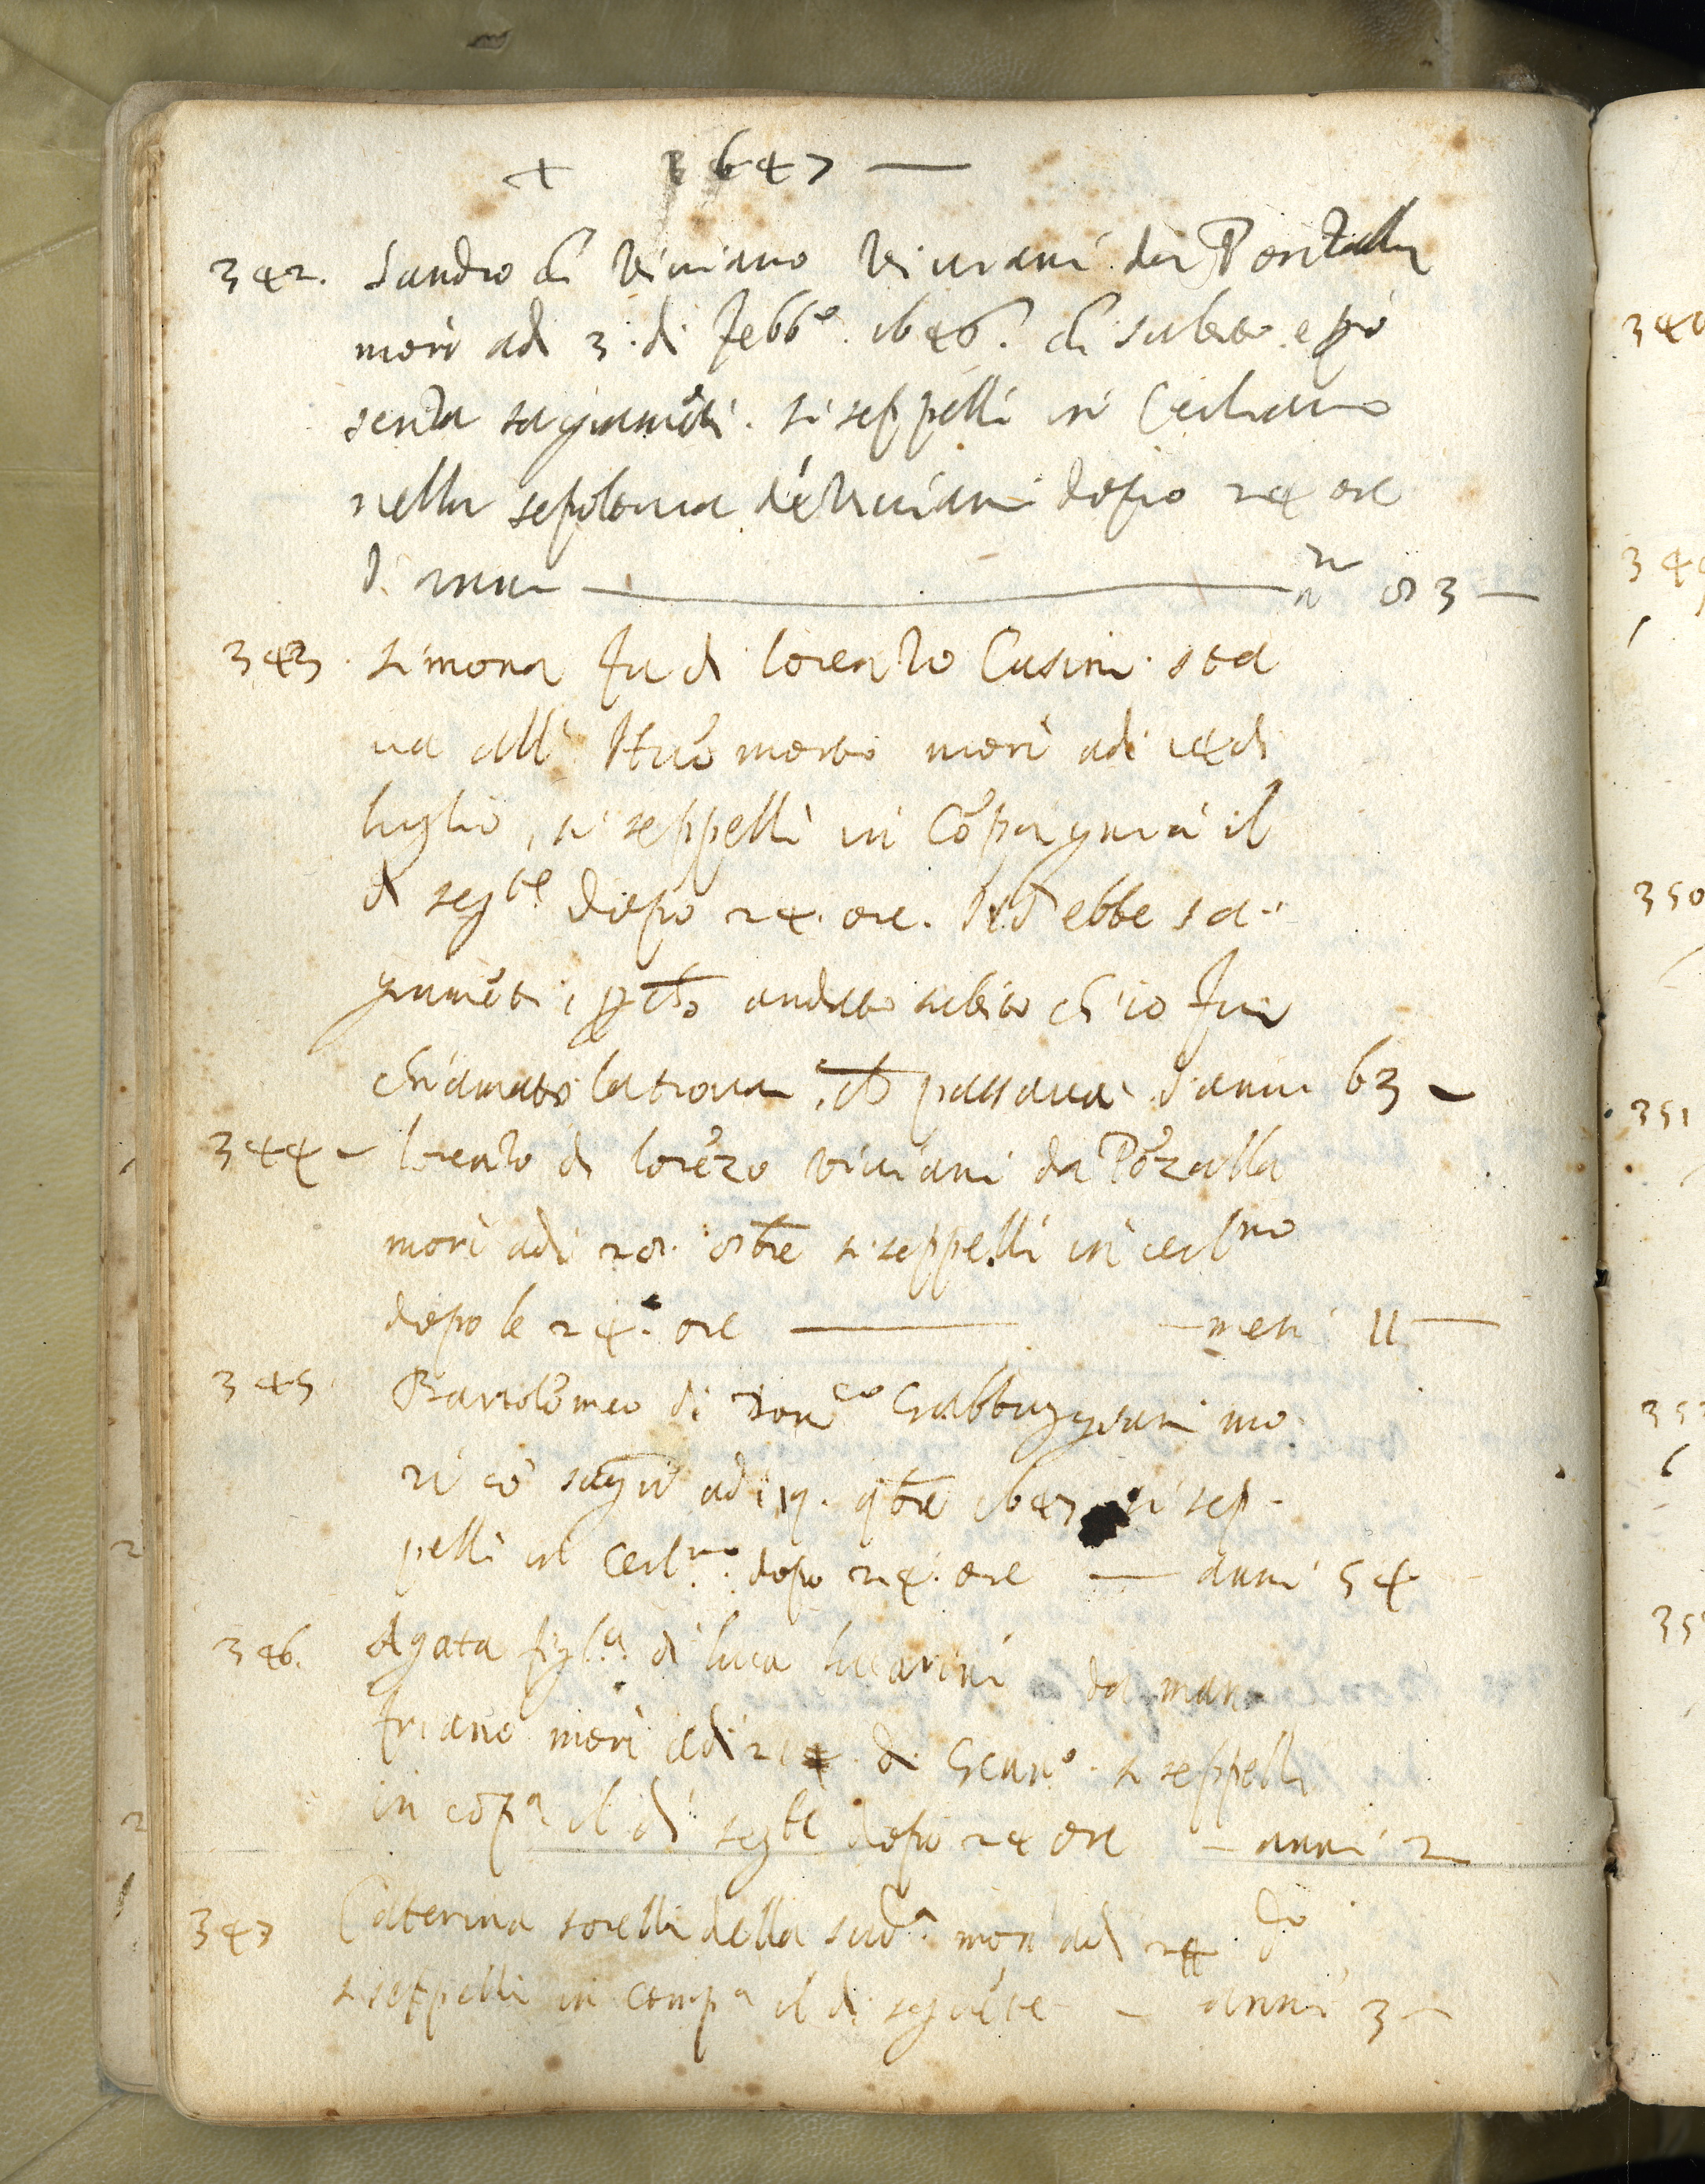 + 1647 —
342. Sandro di Viviano Viviani da Ponzalla
morì adì 3. di febb.º 1646. di subito e pò
senza sagramẽti. si seppellì in Cerliano
nella sepoltura de Viviani dopo 24 ore
d'anni — nº 83 —
343. Simona fu di Lorenzo Casini. sta
va all' Huõ morto morì adì 14 di
luglio, si seppellì in Cõpagnia il
dì seg.te dopo 24. ore. Nõ ebbe sa-
gramẽti, andato subito ch'io fui
chiamato la trovai ch passava d'anni 63 –
344 – Lorenzo di Lorẽzo Viviani da Põzalla
morì adì 28. 8bre si seppellì in cerl.no
dopo le 24. ore — mesi 11 —
345. Bartolomeo di Dom.co Gabbuggiani mo
rì cõ sagm.ti adi 19. 9bre 1647 si sep-
pellì in Cerl.no dopo 24. ore — anni 54
346. Agata figl.a di Luca Lucarini da man
friano morì adì 24 di Genn.º. si seppellì
in cõp.a il dì seg.te dopo 24 ore – anni 2
347 Caterina sorella della sud.a morì adì 24 dº
si seppellì in comp.a il dì seguẽte – anni 3 –
340
350
351